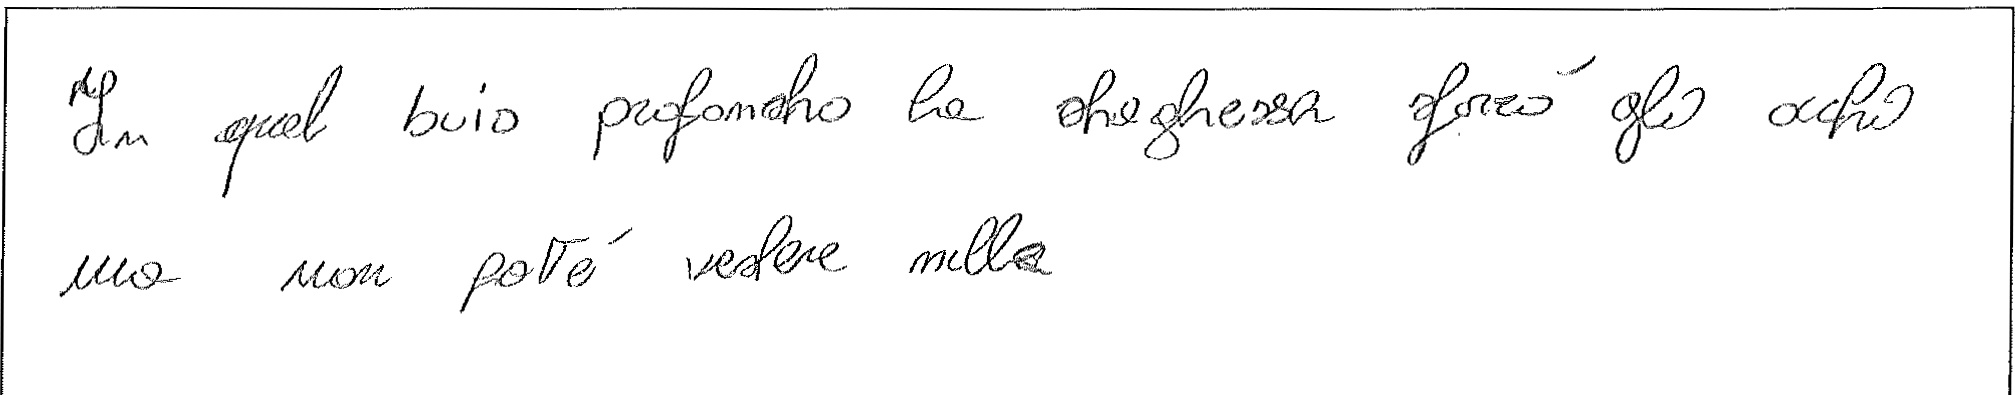 In quel buio profondo la dieghessa sforzò gli occhi
ma non poté vedere nulla